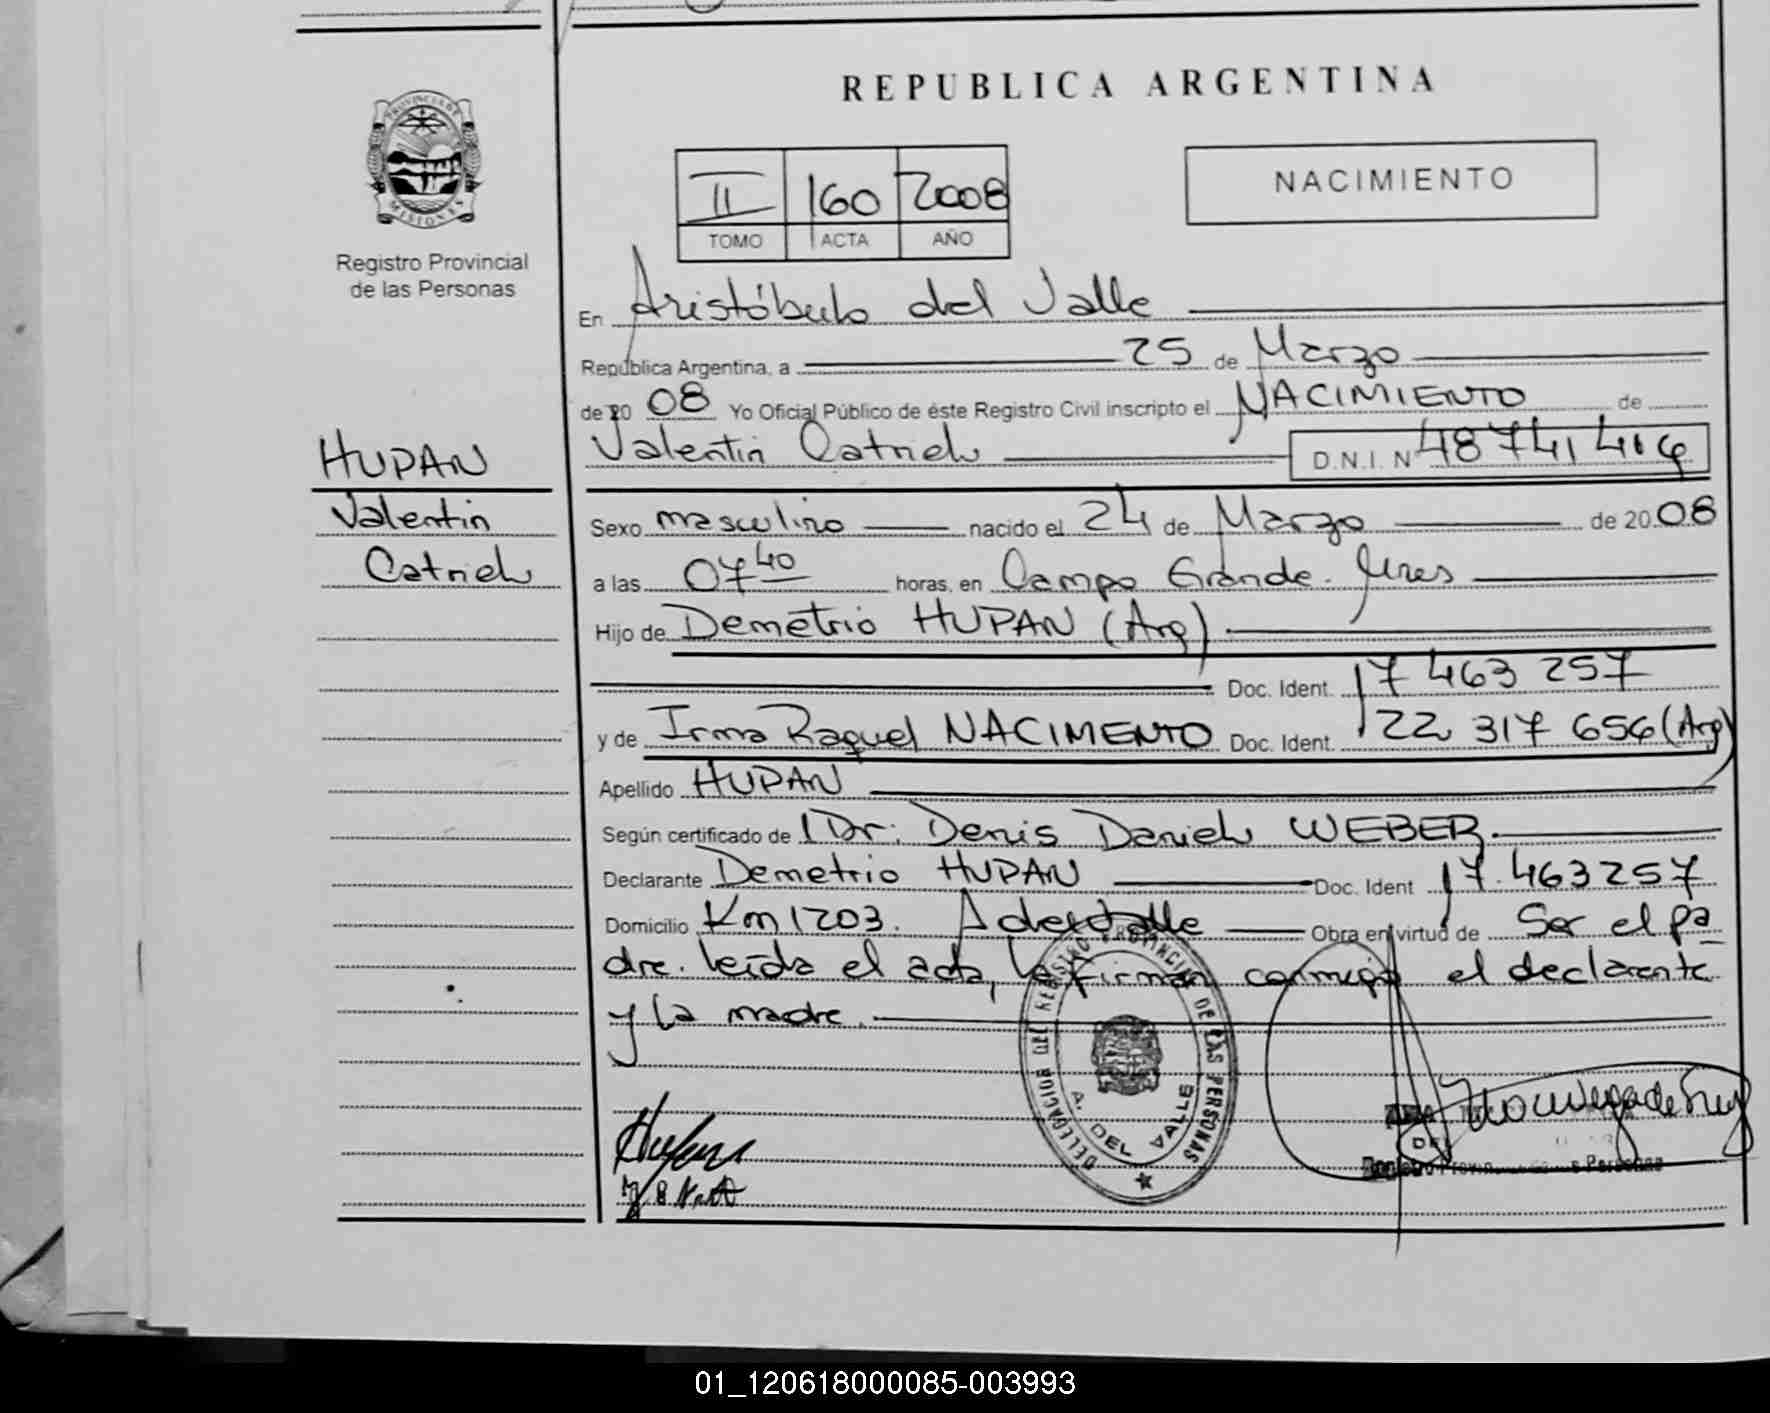 REPUBLICA ARGENTINA
PROVINCIA DE MISIONES
Registro Provincial
de las Personas
II 160 2008
TOMO ACTA AÑO
NACIMIENTO
En Aristóbulo del Valle
República Argentina, a 25 de Marzo
de 20 08 Yo Oficial Público de éste Registro Civil inscripto el NACIMIENTO de
HUPAN
Valentin Catriel
Valentin Catriel D.N.I. N 48 741 414
Sexo masculino nacido el 24 de Marzo de 20 08
a las 07 40 horas, en Campo Grande. Mnes
Hijo de Demetrio HUPAN (Arg)
Doc. Ident. 17 463 257
y de Irma Raquel NACIMENTO Doc. Ident. 22 317 656 (Arg)
Apellido HUPAN
Según certificado de Dr. Denis Daniel WEBER.
Declarante Demetrio HUPAN Doc. Ident 17.463257
Domicilio Km 1203. A del Valle Obra en virtud de Ser el pa
dre. leída el acta, la firman conmigo el declarante
y la madre.
DELEGACION DEL REGISTRO PROVINCIAL DE LAS PERSONAS
A. DEL VALLE
Hupan
01_120618000085-003993